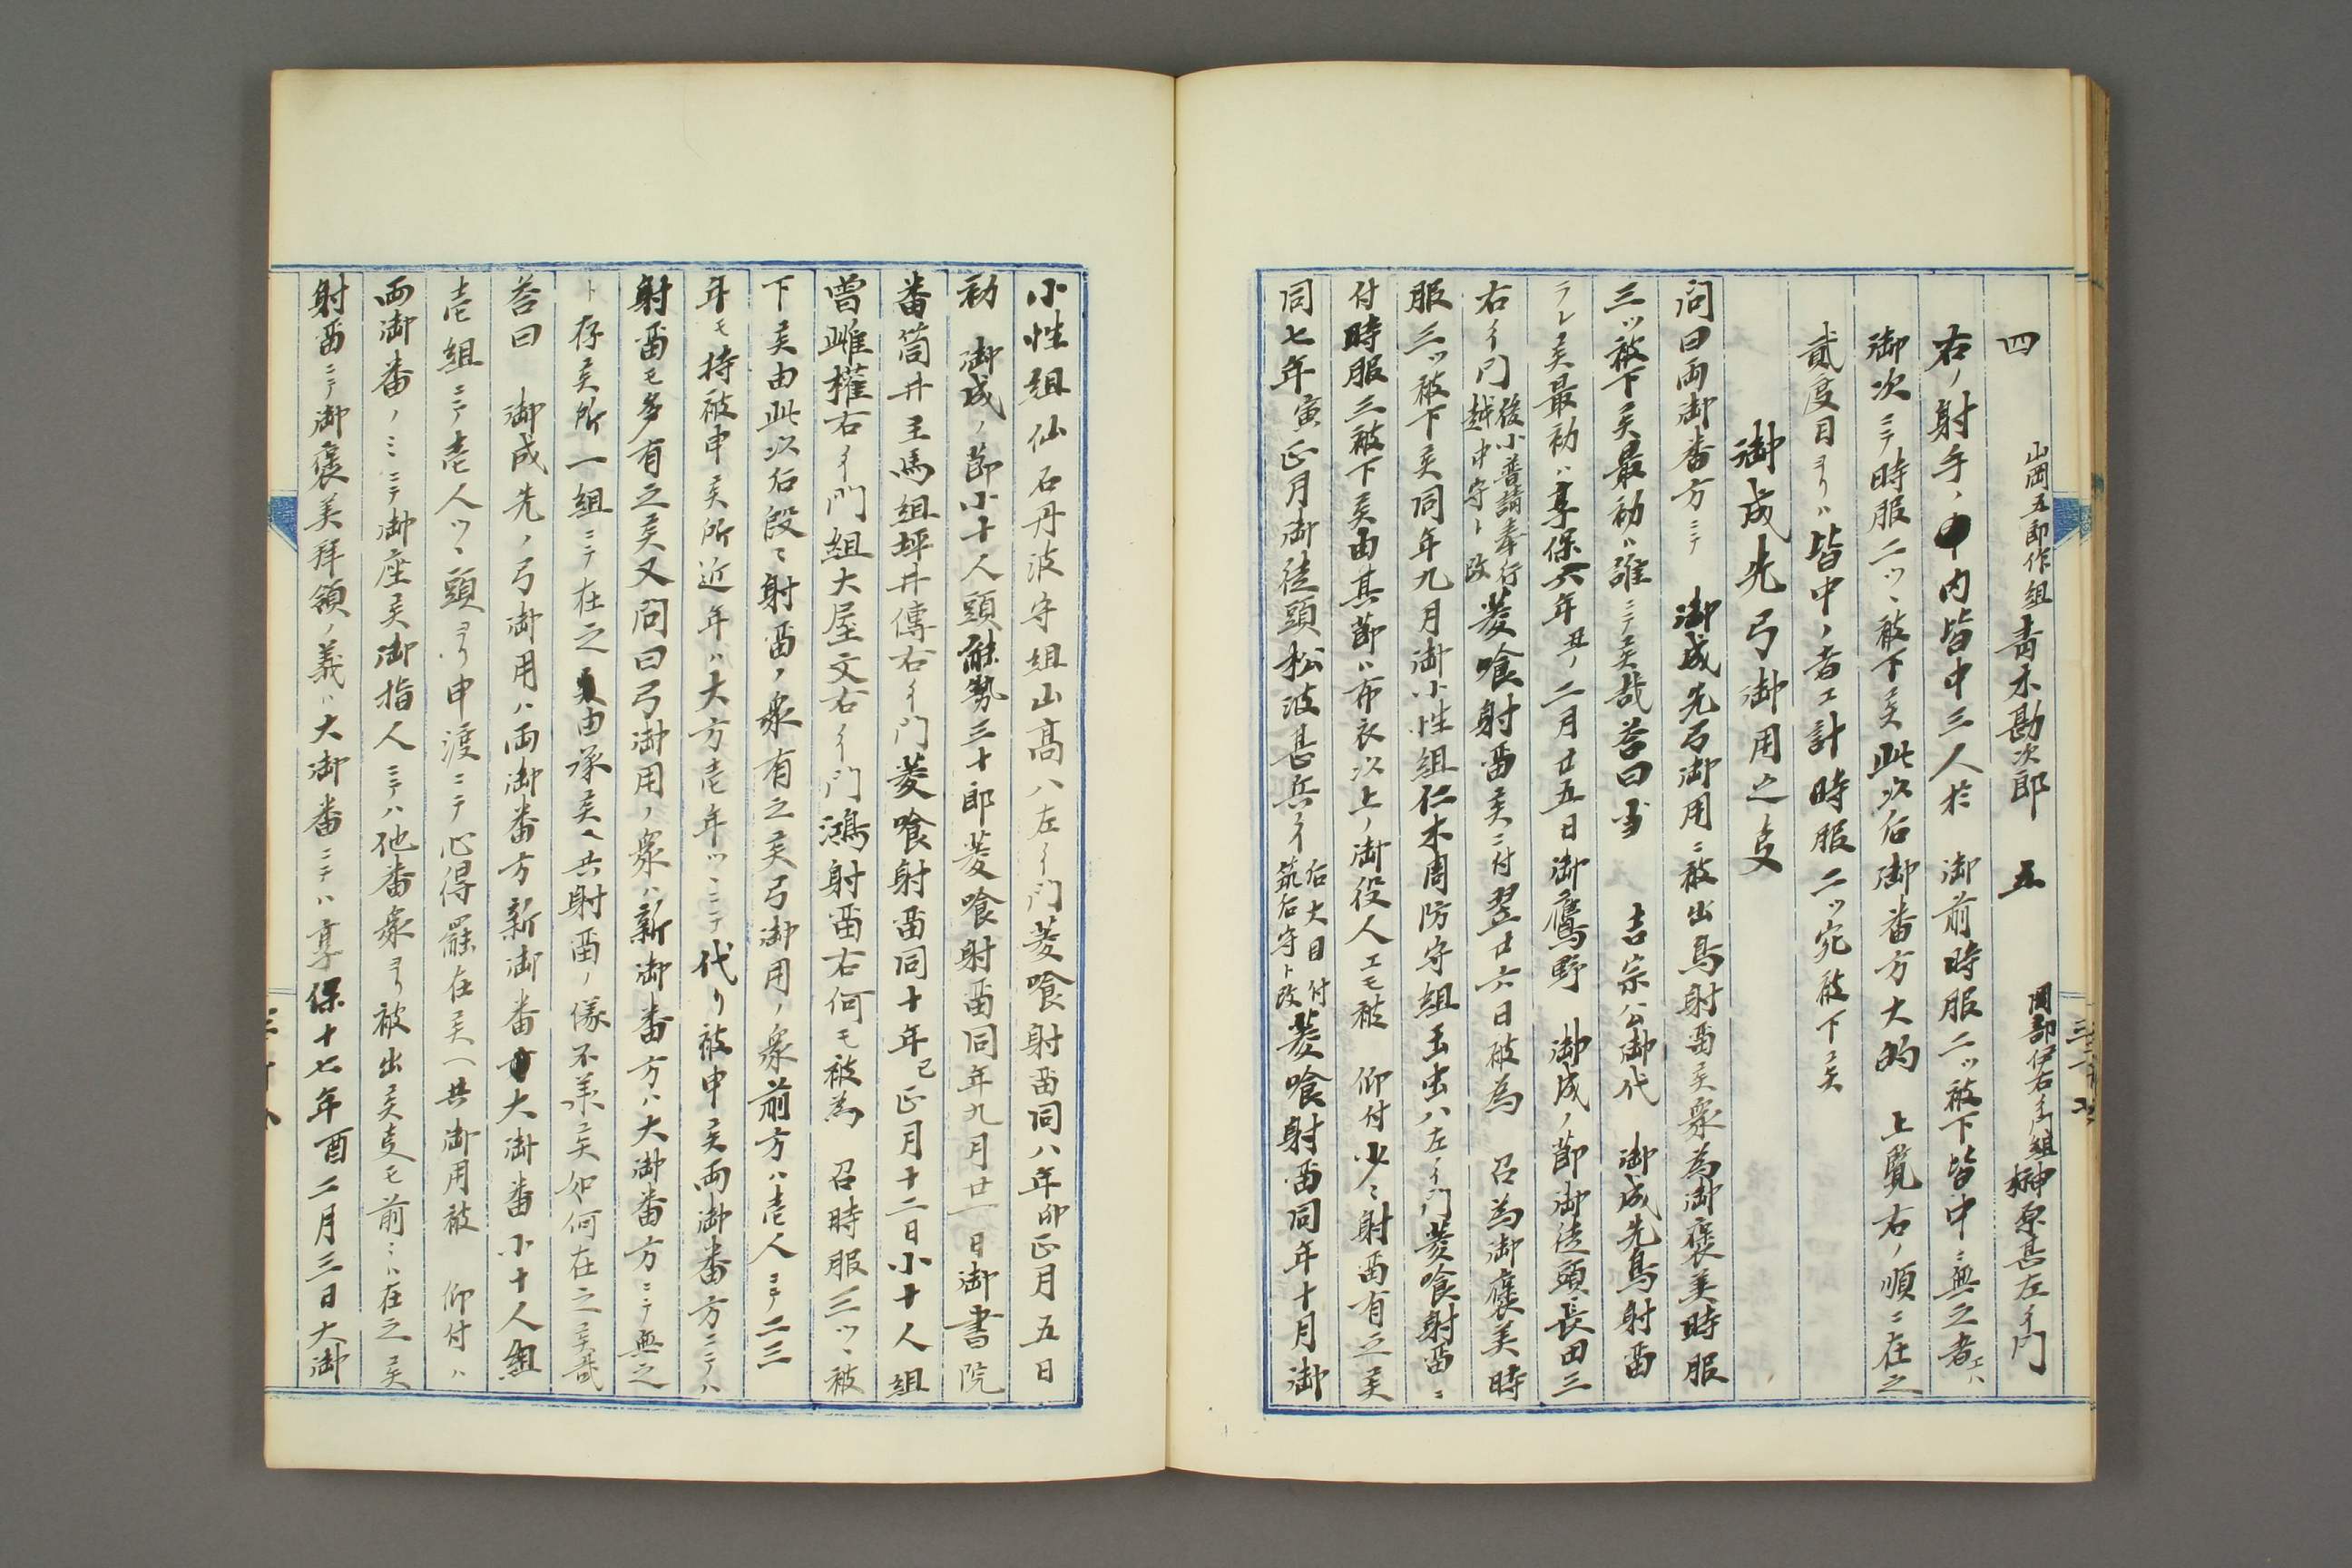 四 山岡五郎作組 青木勘次郎 五 岡部伊右衛門組 榊原甚左衛門
右ノ射手ノ内皆中三人於 御前時服二ツ被下皆中ニ無之者エハ
御次ニテ時服二ツヽ被下候此以后御番方大的 上覧右ノ順ニ在之
貳度目ヨリハ皆中ノ者エ計時服二ツ宛被下候
御成先弓御用之事
問曰両御番方ニテ 御成先弓御用ニ被出鳥射留候衆為御褒美時服
三ツ被下候最初ハ誰ニテ候哉答曰当 吉宗公御代 御成先鳥射留
ラレ候最初ハ享保六年丑ノ二月廿五日御鷹野 御成ノ節御徒頭長田三
右衛門 後小普請奉行越中守ト改 菱喰射留候ニ付翌廿六日被為 召為御褒美時
服三ツ被下候同年九月御小性組仁木周防守組玉虫八左衛門菱喰射留ニ
付時服三被下候由其節ハ布衣以上ノ御役人エモ被 仰付少々射留有之候
同七年寅正月御徒頭松波甚兵衛 后大目付筑后守ト改 菱喰射留同年十月御
小性組仙石丹波守組山髙八左衛門菱喰射留同八年卯正月五日
初 御成ノ節小十人頭能勢三十郎菱喰射留同年九月廿一日御書院
番筒井主馬組坪井傳右衛門菱喰射留同十年巳正月十二日小十人組
曽雌権右衛門組大屋文右衛門鴻射留右何モ被為 召時服三ツヽ被
下候由此以后段々射留ノ衆有之候弓御用ノ衆前方ハ壱人ニテ二三
年モ持被申候所近年ハ大方壱年ツヽニテ代り被申候両御番方ニテハ
射留モ多有之候又問曰弓御用ノ衆ハ新御番方ハ大御番方ニテ無之
ト存候所一組ニテ在之由承候ヘ共射留ノ儀不承候如何在之候哉
答曰 御成先ノ弓御用ハ両御番方新御番大御番小十人組
壱組ニテ壱人ツヽ頭ヨリ申渡ニテ心得罷在候ヘ共御用被 仰付ハ
両御番ノミニテ御座候御指人ニテハ他番衆ヨリ被出候事モ前ニハ在之候
射留ニテ御褒美拝領ノ義ハ大御番ニテハ享保十七年酉二月三日大御